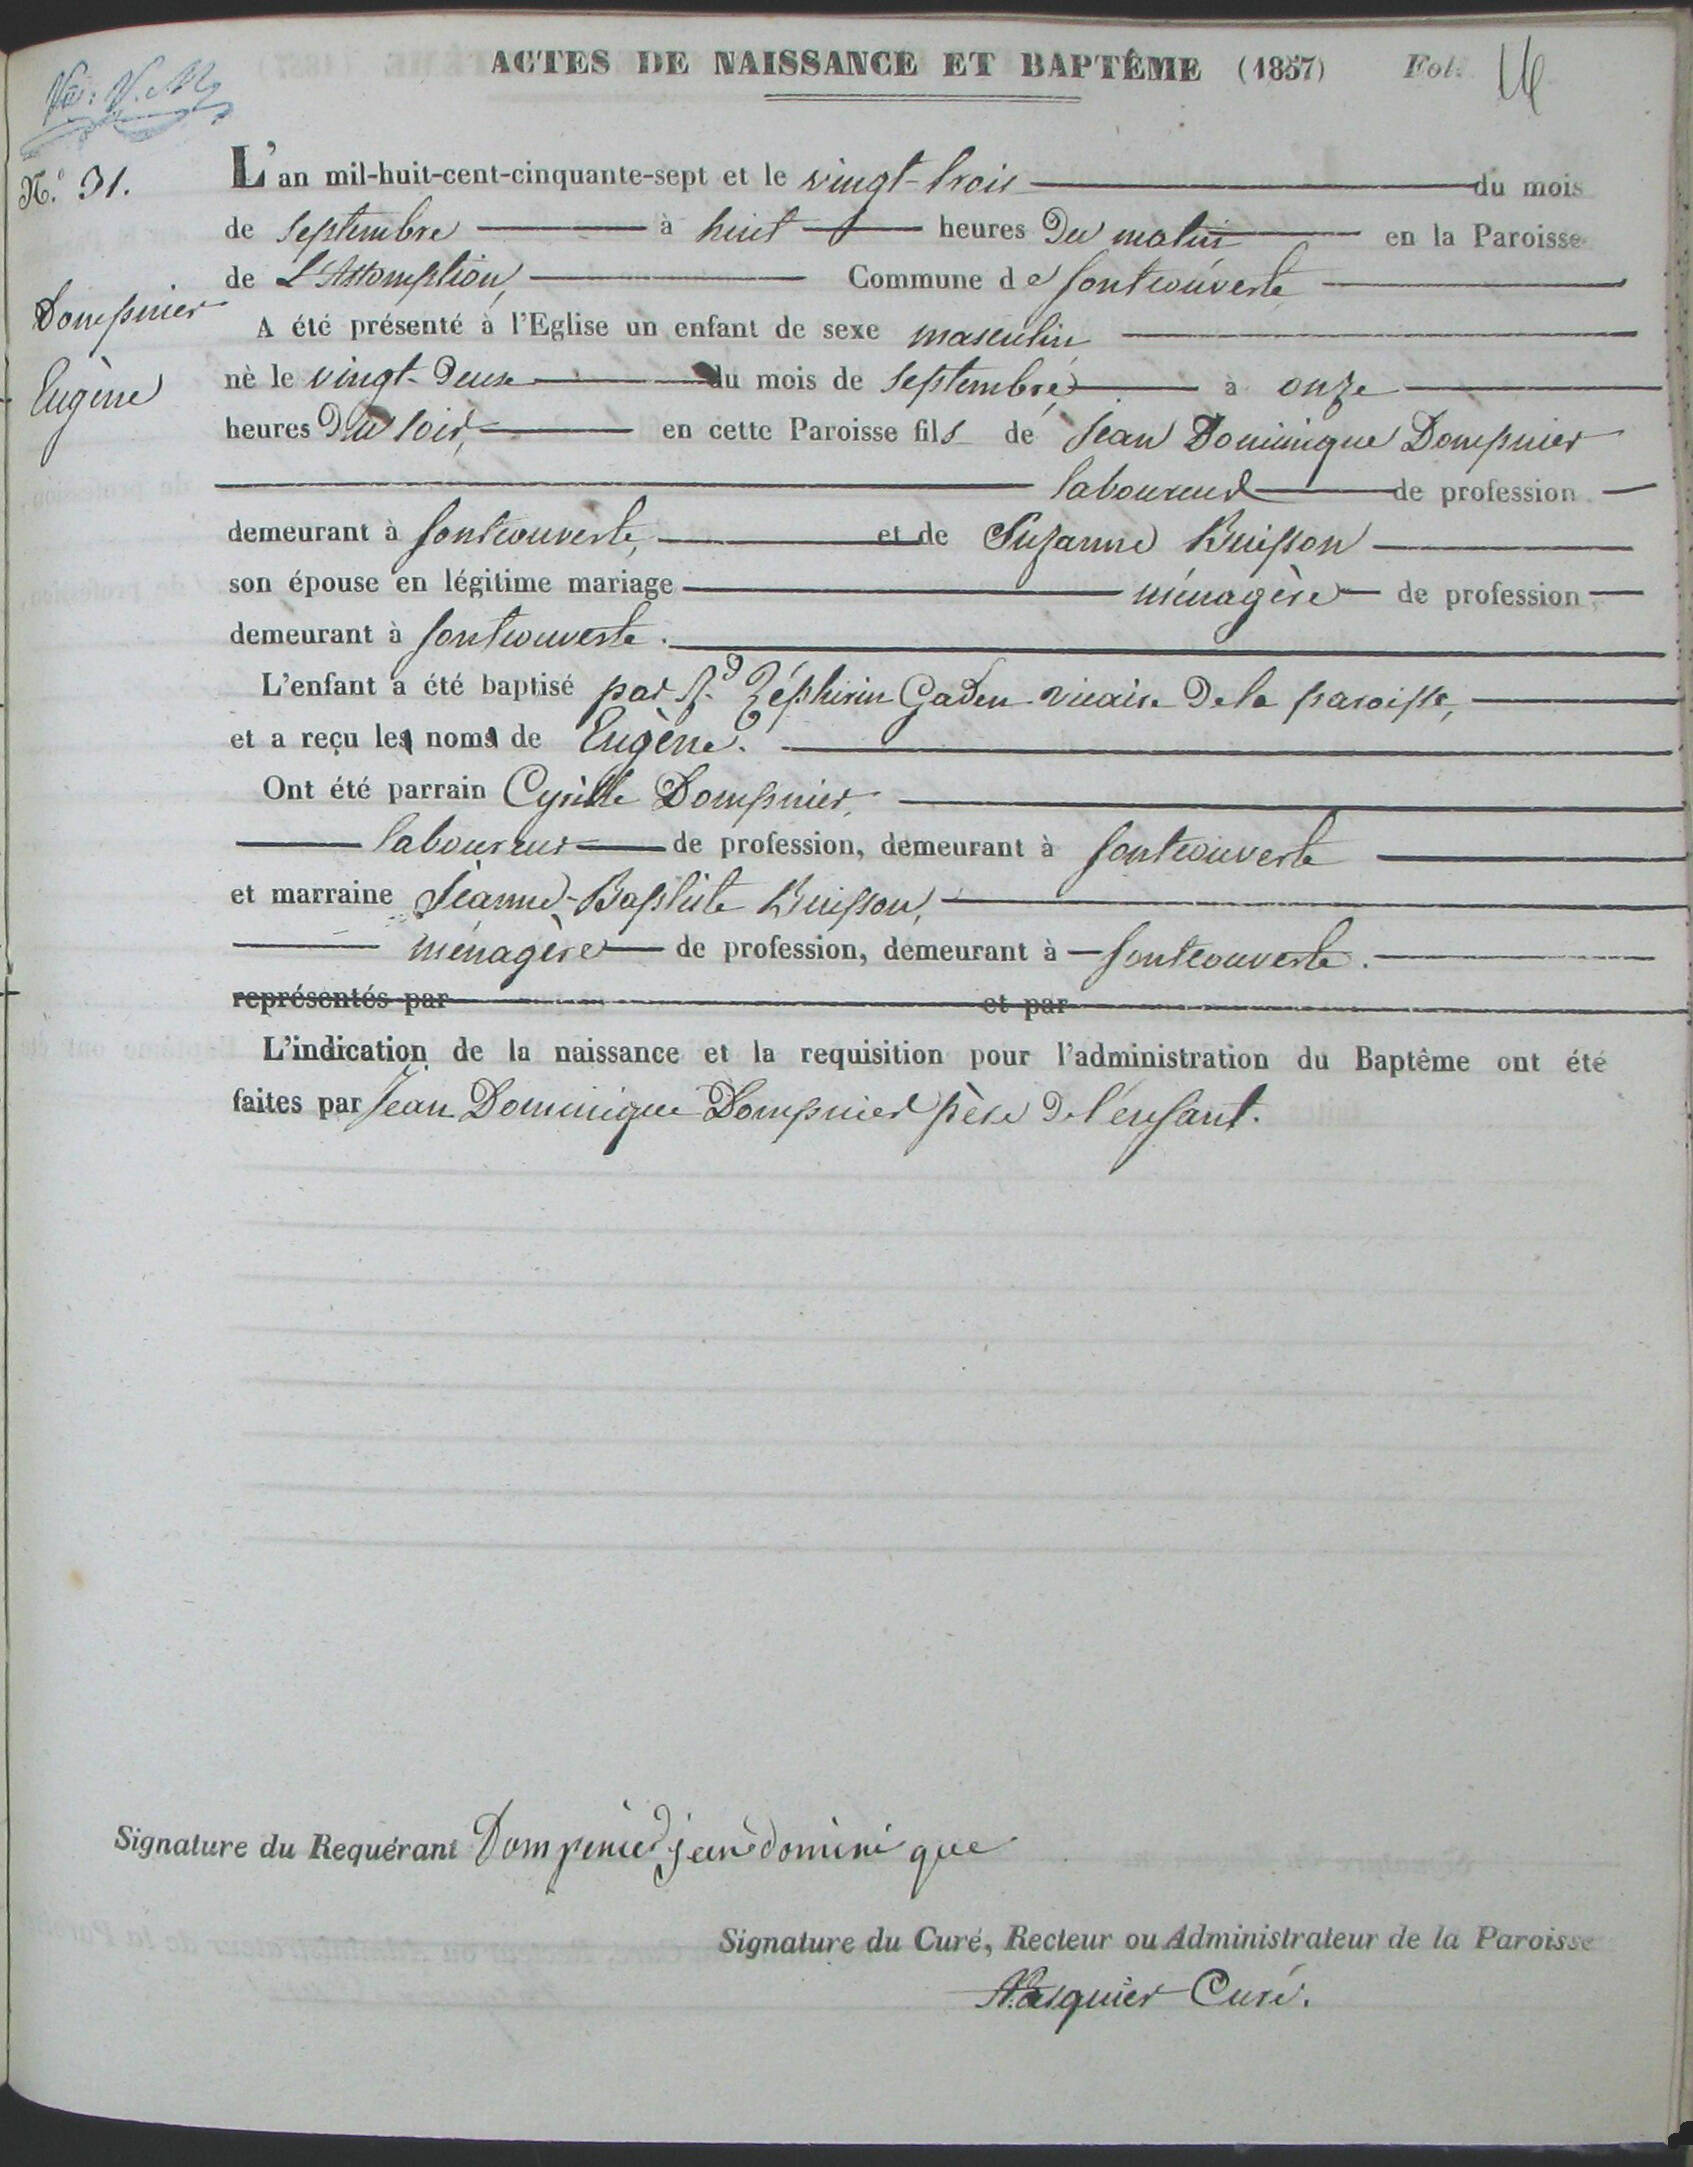 ACTES DE NAISSANCE ET BAPTÊME (1857) Fol. 16
N.° 31.
L'an mil-huit-cent-cinquante-sept et le vingt-trois du mois
de septembre à huit heures du matin en la Paroisse
de L'Assomption, Commune de fontcouverte
Dompnier
Eugène
A été présenté à l'Eglise un enfant de sexe masculin
nè le vingt-deux du mois de septembre à onze
heures du soir, en cette Paroisse fils de Jean Dominique Dompnier
laboureur de profession
demeurant à fontcouverte, et de Suzanne Buisson
son épouse en légitime mariage ménagère de profession
demeurant à fontcouverte.
L'enfant a été baptisé par R.d Zéphirin Gaden vicaire de la paroisse,
et a reçu les noms de Eugène.
Ont été parrain Cyrille Dompnier,
laboureur de profession, demeurant à fontcouverte
et marraine Jeanne-Baptiste Buisson,
ménagère de profession, demeurant à fontcouverte.
représentés par et par
L'indication de la naissance et la requisition pour l'administration du Baptême ont été
faites par Jean Dominique Dompnier père de l'enfant.
Signature du Requérant Dompnier jean dominique
Signature du Curé, Recteur ou Administrateur de la Paroisse
Curé.